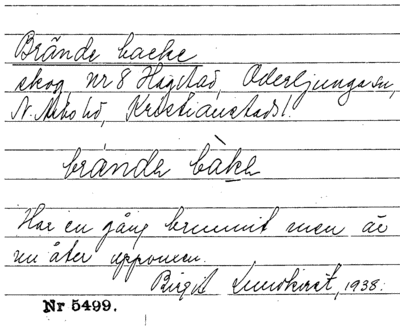 Brände backe
skog, nr 8 Hagstad, Oderljunga sn,
N. Åsbo hd, Kristianstads l.
brànde bàke
Har en gång brunnit men är
nu åter uppvuxen.
Birgit Lundkvist, 1938.
Nr 5499.